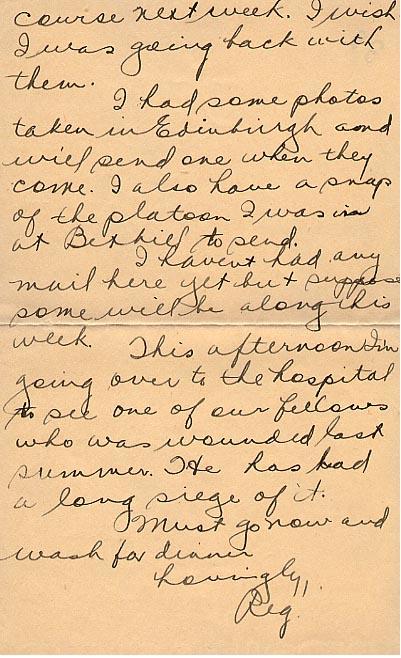 course next week. I wish
I was going back with
them.
I had some photos
taken in Edinburgh and
will send one when they
come. I also have a snap
of the platoon I was in
at Bexhill to send.
I havent had any
mail here yet but suppose
some will be along this
week. This afternoon I'm
going over to the hospital
to see one of our fellows
who was wounded last
summer. He has had
a long siege of it.
Must go now and
wash for dinner
Lovingly,
Reg.